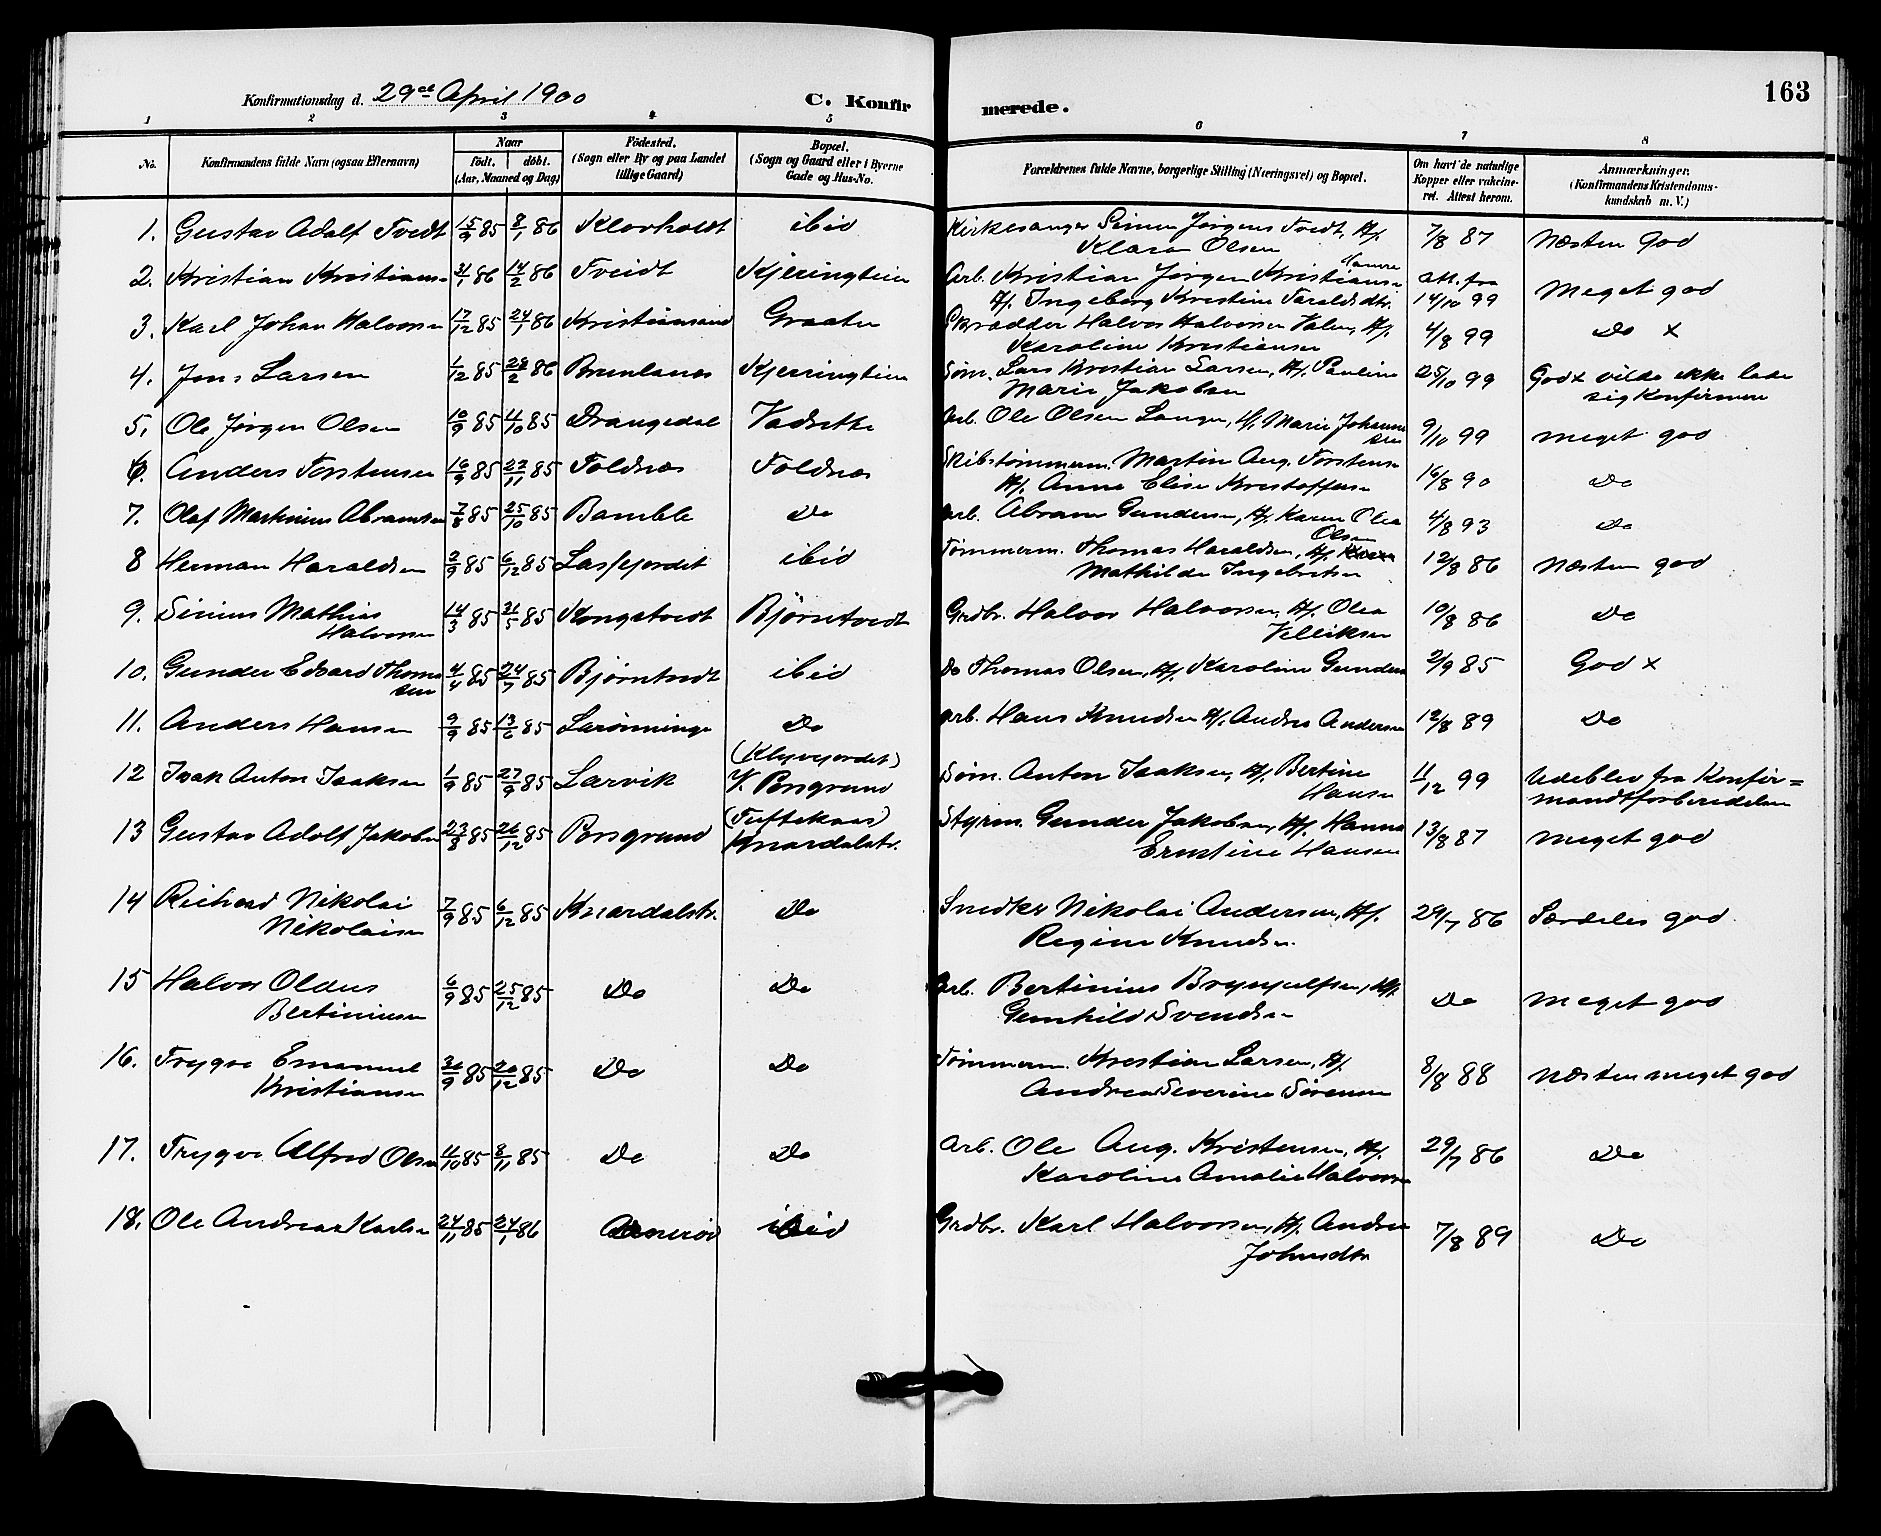 163
Konfirmationsdag d. 29de April 1900 C. Konfir merede.
1 2 3 4 5 6 7 8
No. Konfirmandens fulde Navn (ogsaa Efternavn) Naar født. døbt. (Aar, Maaned og Dag) Fødested. (Sogn eller By og paa Landet tillige Gaard) Bopæl. (Sogn og Gaard eller i Byerne Gade og Hus-No. Forældrenes fulde Navne, borgerlige Stilling (Næringsvei) og Bopæl. Om havt de naturlige Kopper eller vakcineret. Attest herom. Anmærkninger. (Konfirmandens Kristendomskundskab m. V.)
1. Gustav Adolf Tvedt 15/9 85 8/1 86 Klovholdt ibid Kirkesanger Simon Jørgens Tvedt, Hf. 7/8 87 Næsten god
Klara Olsen
2. Kristian Kristians 31/1 86 14/2 86 Tveidt Kjerringtein Arb. Kristian Jørgen Kristians att. fra Meget god
Hf. Ingeborg Kristine Taraldsdtr. 14/10 99
3. Karl Johan Halvorsen 17/12 85 24/1 86 Kristiansand Graaten Skrædder Halvor Halvorsen Valen, Hf. 4/8 99 Do x
Karoline Kristiansen
4. Jens Larsen 1/12 85 28/2 86 Brunlanes Kjerringtein Søm. Lars Kristian Larsen, Hf. Pauline 25/10 99 God x vilde ikke lade
Marie Jakobsen sig konfirmere
5. Ole Jørgen Olsen 10/9 85 4/10 85 Drangedal Vadrette Arb. Ole Olsen Langen, Hf. Marie Johanne 9/10 99 meget god
sen
6. Anders Torstensen 16/9 85 22/11 85 Foldnes Foldnes Skibstømmerm. Martin Aug. Torstens 16/8 90 Do
Hf. Anne Elise Kristoffersen
7. Olaf Martinius Abramsen 7/8 85 25/10 85 Bamble Do Arb. Abram Gundersen, Hf. Karen Olea 4/8 93 Do
Olsen
8 Herman Haraldsen 2/9 85 6/12 85 Lasfjordet ibid Tømmerm. Thomas Haraldsen, Hf. 12/8 86 Næsten god
Mathilde Ingebretsen
9. Sinius Mathias 14/3 85 31/5 85 Kongstvedt Bjørntvedt Grdbr. Halvor Halvorsen, Hf. Olea 10/8 86 Do
Halvorsen Velliksen
10. Gunder Edvard Thoma 4/4 85 24/7 85 Bjørntvedt ibid Do Thomas Olsen, Hf. Karoline Gunders 2/9 85 God x
sen
11. Anders Hansen 9/9 85 13/6 85 Do Arb. Hans Knudsen Hf. Andrea Andersen 12/8 89 Do
12 Isak Anton Isaksen 1/9 85 27/9 85 Larvik (Klyvejordet) Søm. Anton Isaksen, Hf. Bertine 11/12 99 Udeblev fra Konfir=
V. Porsgrund Hansen mandtforberedelsen
13 Gustav Adolf Jakobsen 23/8 85 26/12 85 Porsgrund (Tuftekaas) Styrm. Gunder Jakobsen, Hf. Hanna 13/8 87 meget god
Knardalstr. Ernstine Hansen
14 Richard Nikolai 7/9 85 6/12 85 Knardalstr. Do Snedker Nikolai Andersen, Hf. 29/7 86 Særdeles god
Nikolaisen Regine Knudsen.
15 Halvor Olaus 6/9 85 25/12 85 Do Do Arb. Bertinius Brynjulfsen, Hf. Do meget god
Bertiniusen Gunhild Svendsen
16. Trygve Emanuel 30/9 85 20/12 85 Do Do Tømmerm. Kristian Larsen, Hf. 8/8 88 Næsten meget god
Kristiansen Andrea Severine Sørensen
17. Trygve Alfred Olsen 4/10 85 8/11 85 Do Do Arb. Ole Aug. Kristensen, Hf. 29/7 86 Do
Karoline Amalie Halvorsen
18. Ole Andreas Karlsen 24/11 85 24/1 86 ibid Grdbr. Karl Halvorsen, Hf. Andrea 7/8 89 Do
Johnsdtr